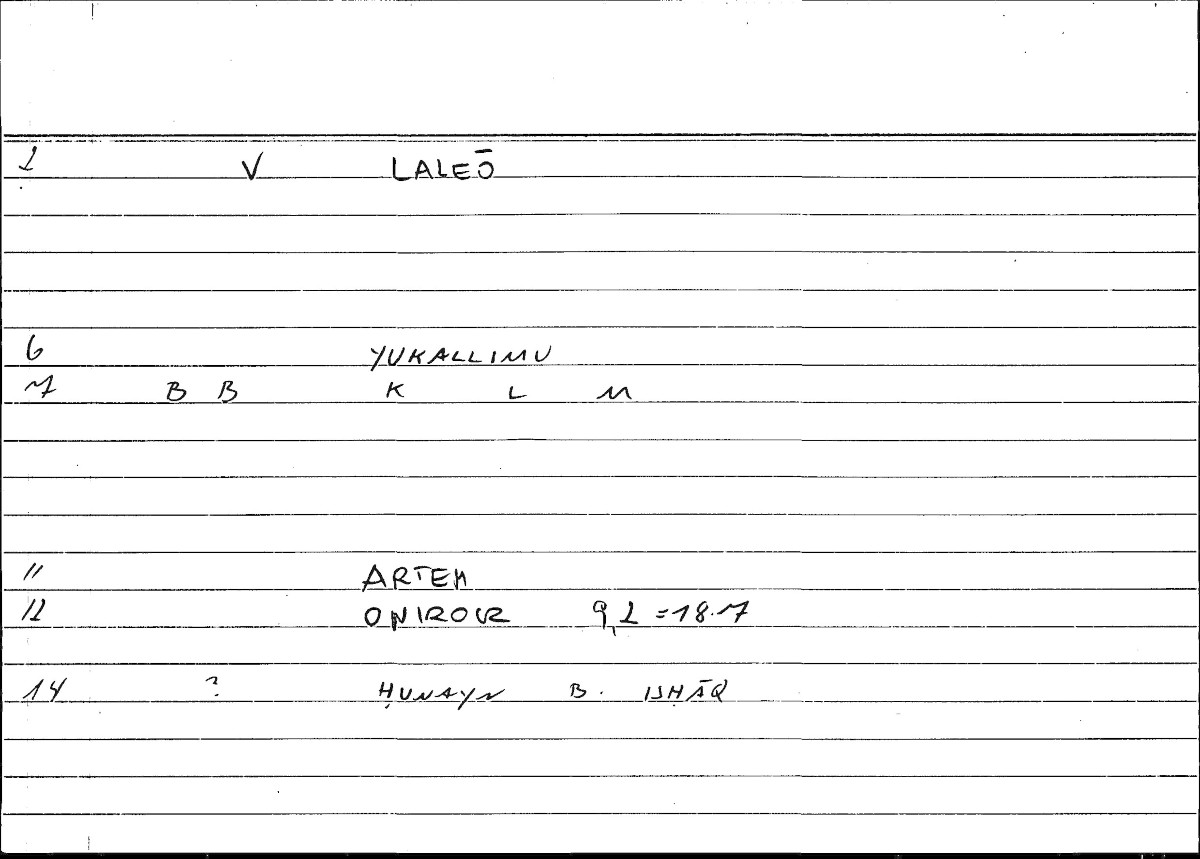 1 V LALEŌ
6 YUKALLIMU
7 B B K L M
11 ARTEM
12 ONIROCR 9,2 = 18.7
14 ? ḤUNAYN B. ISḤĀQ